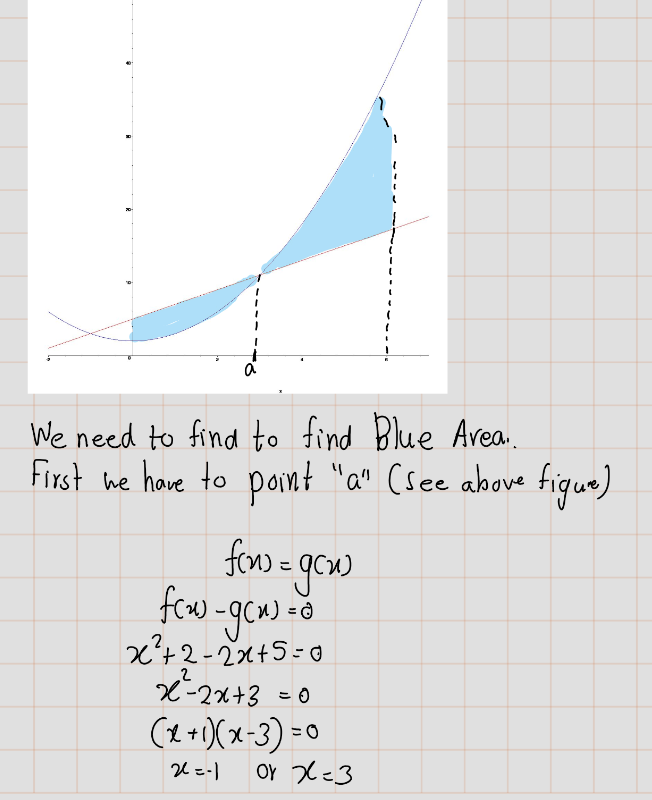 40
30
20
10
-2 0 2 4 6
a
x
We need to find to find Blue Area.
First we have to point "a" (see above figure)
f(x) = g(x)
f(x) - g(x) = 0
x² + 2 - 2x + 5 = 0
x² - 2x + 3 = 0
(x + 1)(x - 3) = 0
x = -1 or x = 3